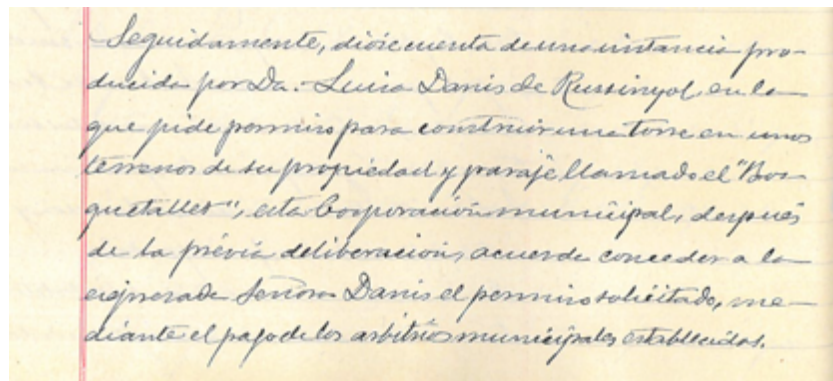 Seguidamente, dióse cuenta de una instancia pro-
ducida por Da. Luisa Danis de Russinyol, en la
que pide permiso para construir una torre en unos
terrenos de su propiedad y paraje llamado el "Bos-
quetallet", esta Corporación municipal, después
de la prévia deliberación, acuerda conceder a la
expresada Señora Danis el permiso solicitado, me-
diante el pago de los arbitrios municipales establecidos.